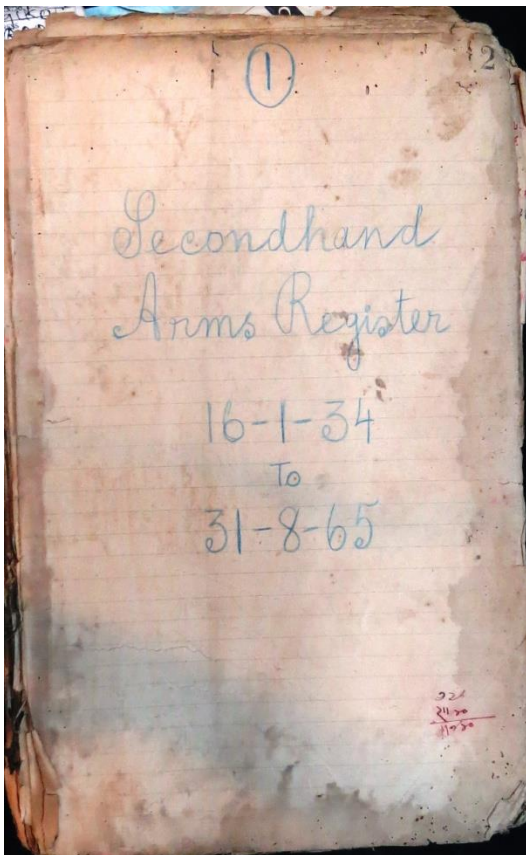 1
2
Secondhand
Arms Register
16-1-34
To
31-8-65